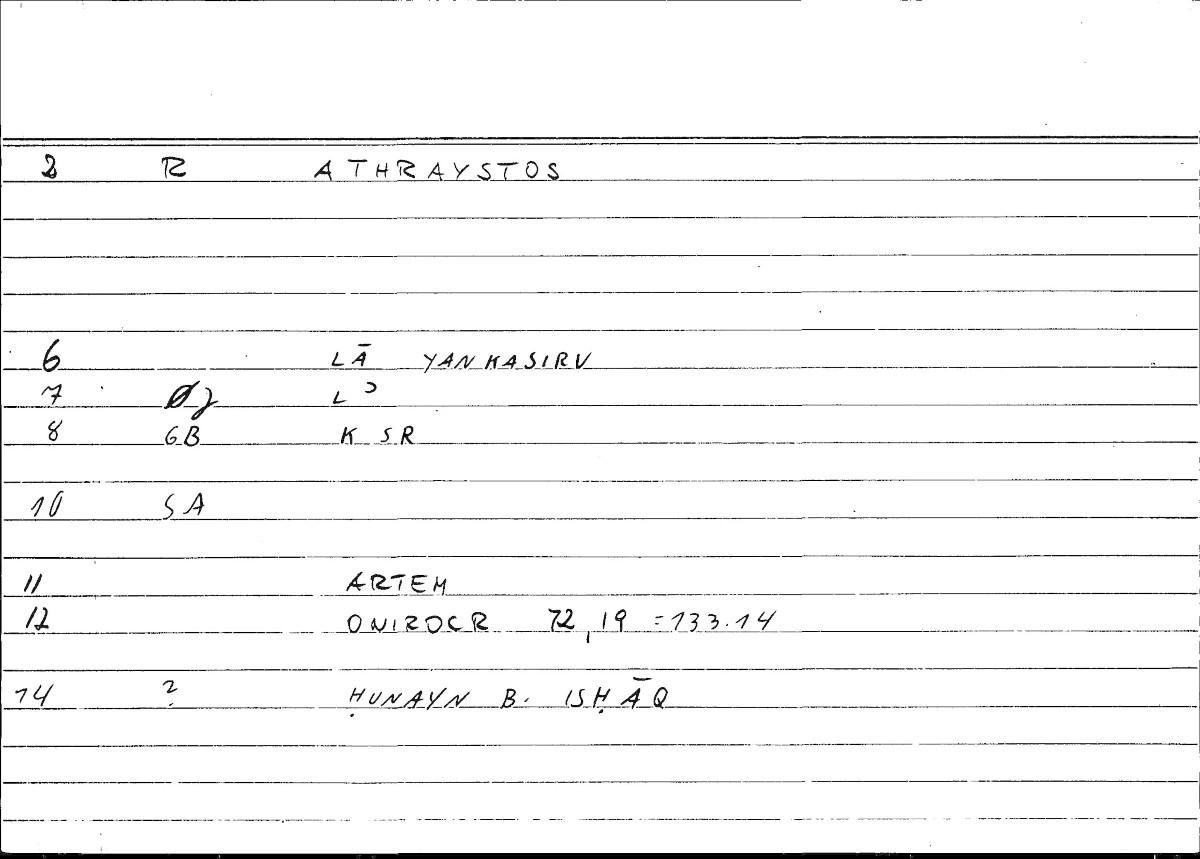 2 R ATHRAYSTOS
6 LĀ YANKASIRU
7 L ʾ
8 GB K SR
10 SA
11 ARTEM
12 ONIROCR 72,19 = 133.14
14 ? ḤUNAYN B. ISḤĀQ